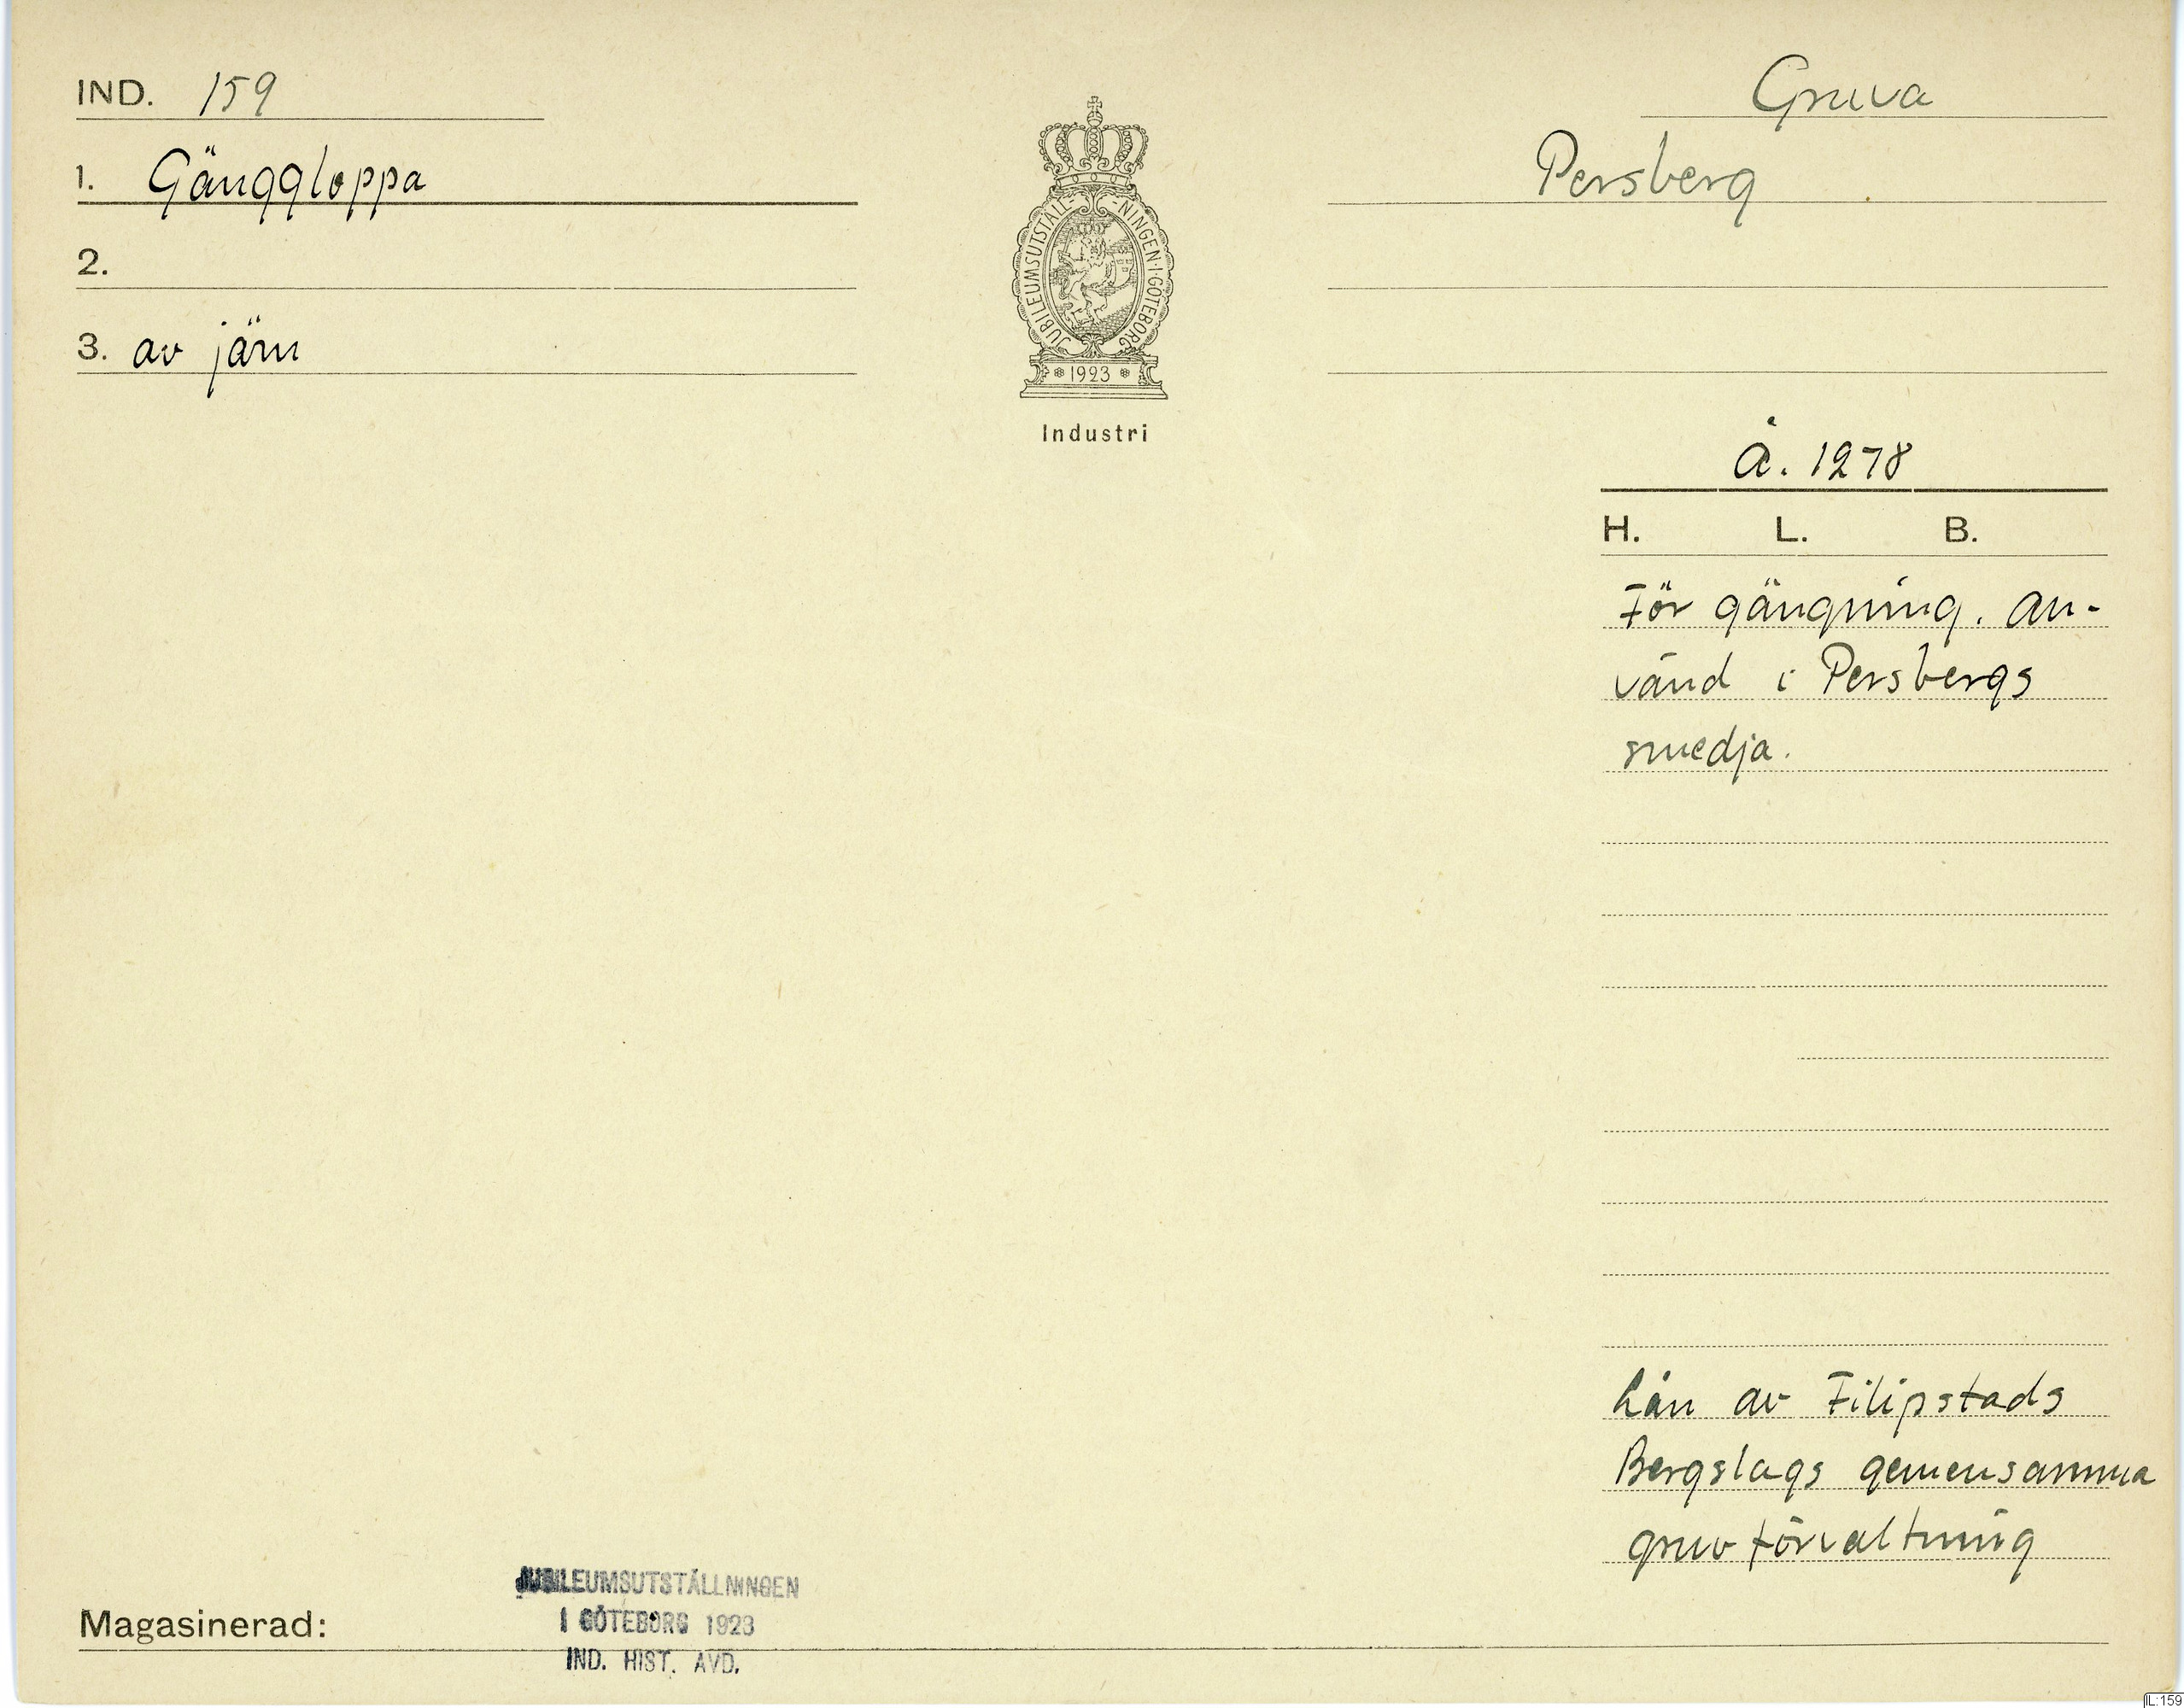 IND. 159
1. Gänggloppa
2.
3. av järn
JUBILEUMSUTSTÄLL-NINGEN·I·GÖTEBORG
1923
Industri
Gruva
Persberg
Å. 1278
H. L. B.
För gängning. An-
vänd i Persbergs
smedja.
Lån av Filipstads
Bergslags gemensamma
gruvförvaltning
JUBILEUMSUTSTÄLLNINGEN
I GÖTEBORG 1923
IND. HIST. AVD.
Magasinerad:
IL:159